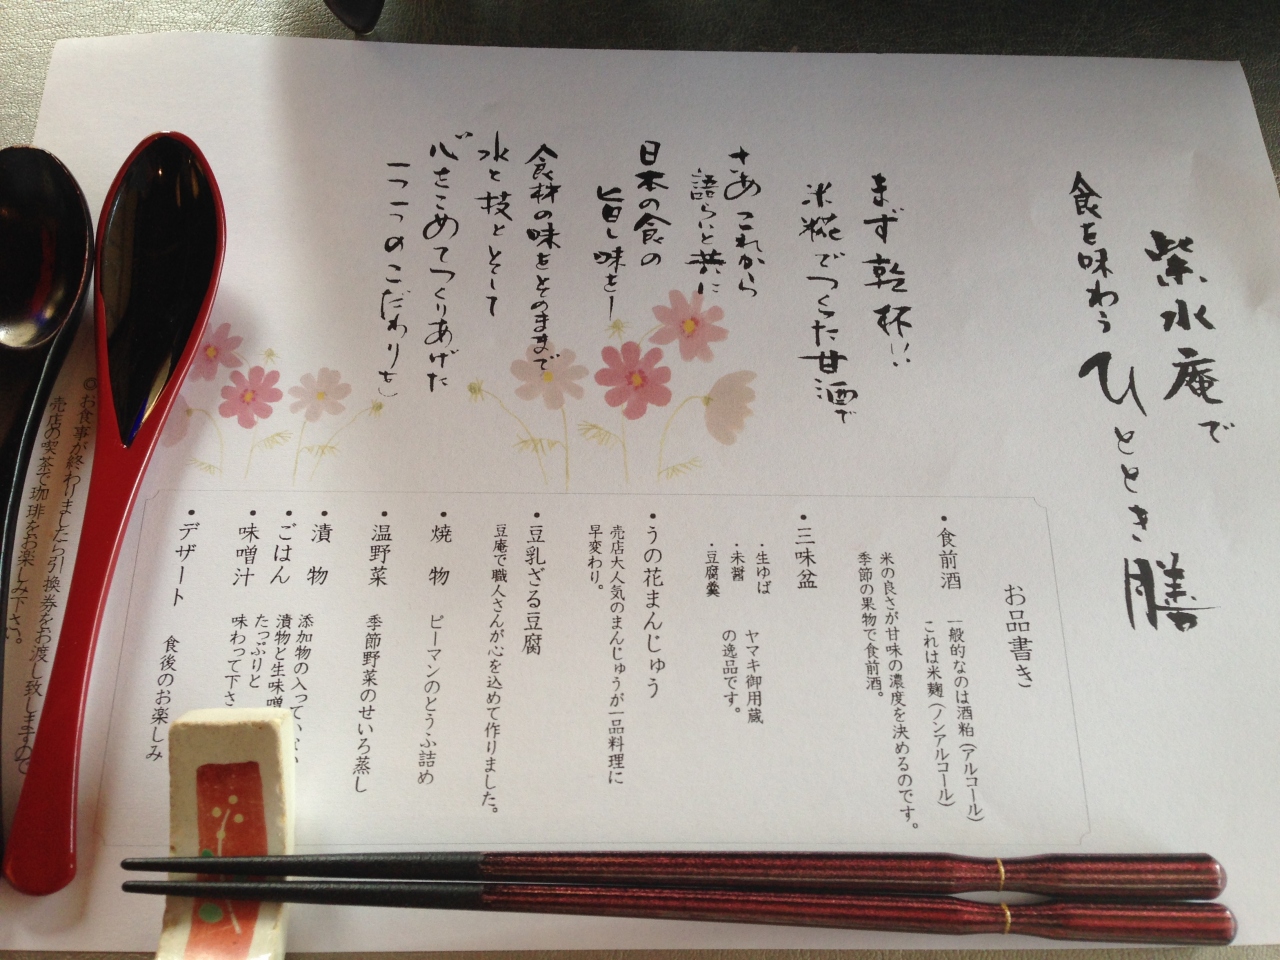 紫水庵で
食を味わう ひととき膳
まず乾杯!!
米糀でつくった甘酒で
さあ これから
語らいと共に
日本の食の
旨し味を!
食材の味をそのままで
水と技とそして
心をこめてつくりあげた
一つ一つのこだわりを
お品書き
・食前酒
一般的なのは酒粕(アルコール)
これは米麹(ノンアルコール)
米の良さが甘味の濃度を決めるのです。
季節の果物で食前酒。
・三味盆
・生ゆば
・未醤
・豆腐羹
ヤマキ御用蔵
の逸品です。
・うの花まんじゅう
売店大人気のまんじゅうが一品料理に
早変わり。
・豆乳ざる豆腐
豆庵で職人さんが心を込めて作りました。
・焼物 ピーマンのとうふ詰め
・温野菜 季節野菜のせいろ蒸し
・漬物
・ごはん
・味噌汁
添加物の入っていない
漬物と生味噌
たっぷりと
味わって下さ
・デザート 食後のお楽しみ
お食事が終わりましたら引換券をお渡し致しますので
売店の喫茶で珈琲をお楽しみ下さい。